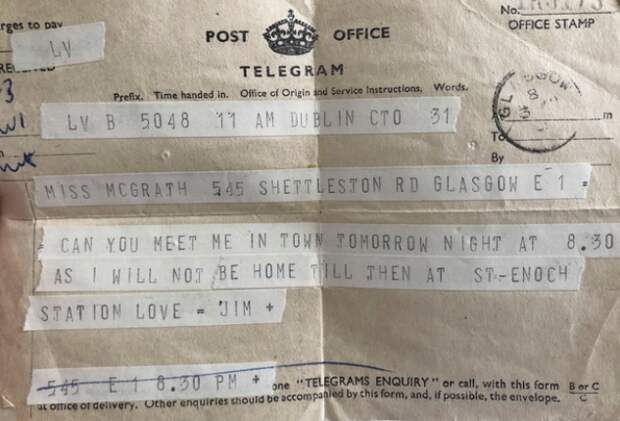 rges to pay
No.
OFFICE STAMP
POST OFFICE
LV
TELEGRAM
Prefix. Time handed in. Office of Origin and Service Instructions. Words.
GLASGOW
8
LV B 5048 11 AM DUBLIN CTO 31
m
To
By
MISS MCGRATH 545 SHETTLESTON RD GLASGOW E 1 =
= CAN YOU MEET ME IN TOWN TOMORROW NIGHT AT 8.30
AS I WILL NOT BE HOME TILL THEN AT ST-ENOCH
STATION LOVE = JIM +
545 E 1 8.30 PM +
one "TELEGRAMS ENQUIRY" or call, with this form B or C
at office of delivery. Other enquiries should be accompanied by this form, and, if possible, the envelope.